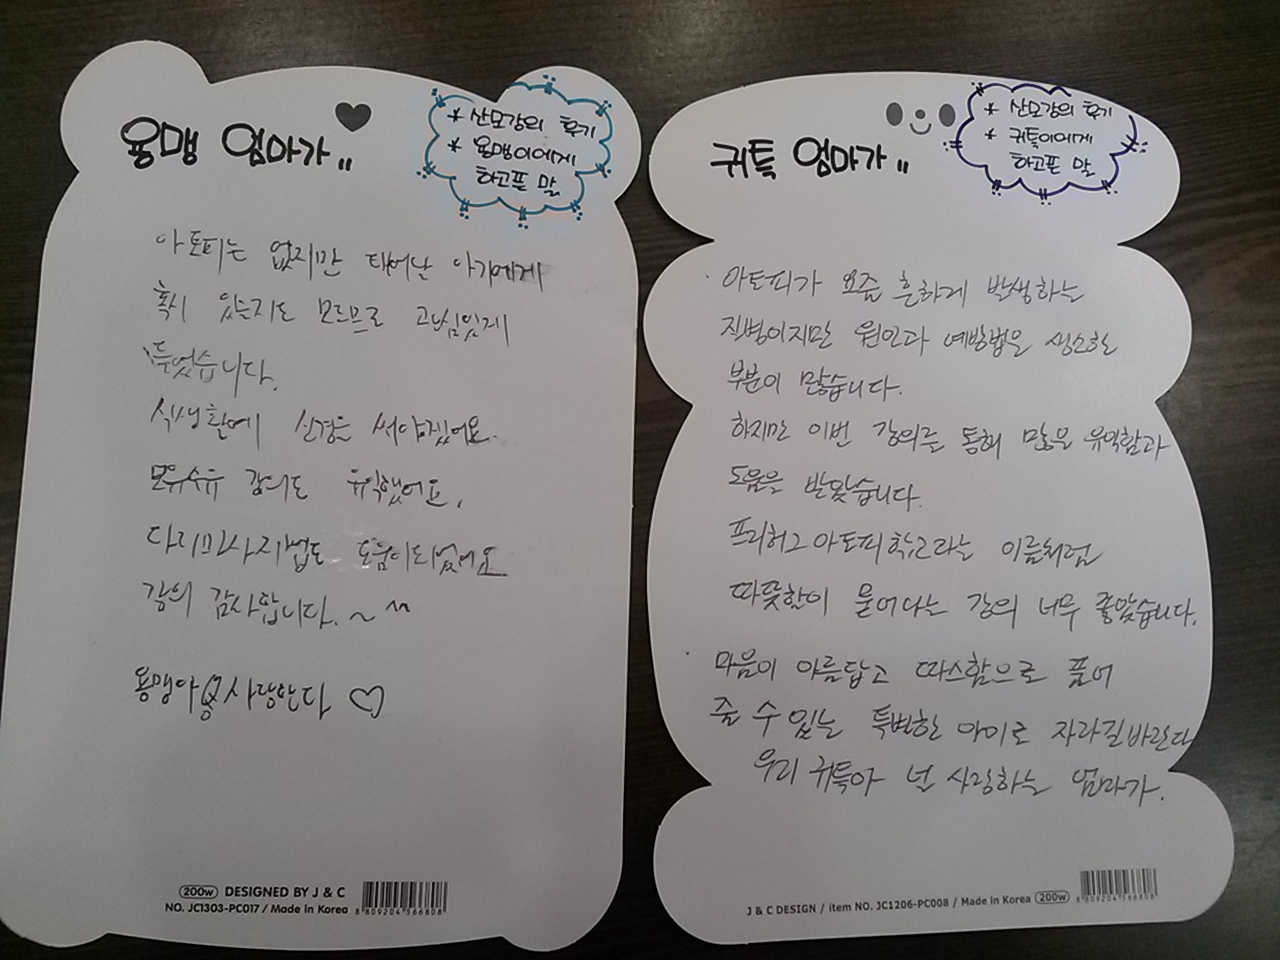 용맹 엄마가..
* 산모강의 후기
* 용맹이에게
하고픈 말
아토피는 없지만 태어날 아기에게
혹시 있을지도 모르므로 관심있게
들었습니다.
식생활에 신경을 써야겠어요.
모유수유 강의도 유익했어요.
다리마사지법도 도움이되었어요
강의 감사합니다.~ ^^
용맹아 사랑한다 ♡
200w DESIGNED BY J & C
NO. JC1303-PC017 / Made in Korea
8 809204 566808
귀특 엄마가..
* 산모강의 후기
* 귀특이에게
하고픈 말
아토피가 요즘 흔하게 발생하는
질병이지만 원인과 예방법은 생소한
부분이 많습니다.
하지만 이번 강의를 통해 많은 유익함과
도움을 받았습니다.
프리허그아토피학교라는 이름처럼
따뜻함이 묻어나는 강의 너무 좋았습니다.
마음이 아름답고 따스함으로 품어
줄 수 있는 특별한 아이로 자라길바란다
우리 귀특아 널 사랑하는 엄마가.
J & C DESIGN / item NO. JC1206-PC008 / Made in Korea 200w
8 809204 566808